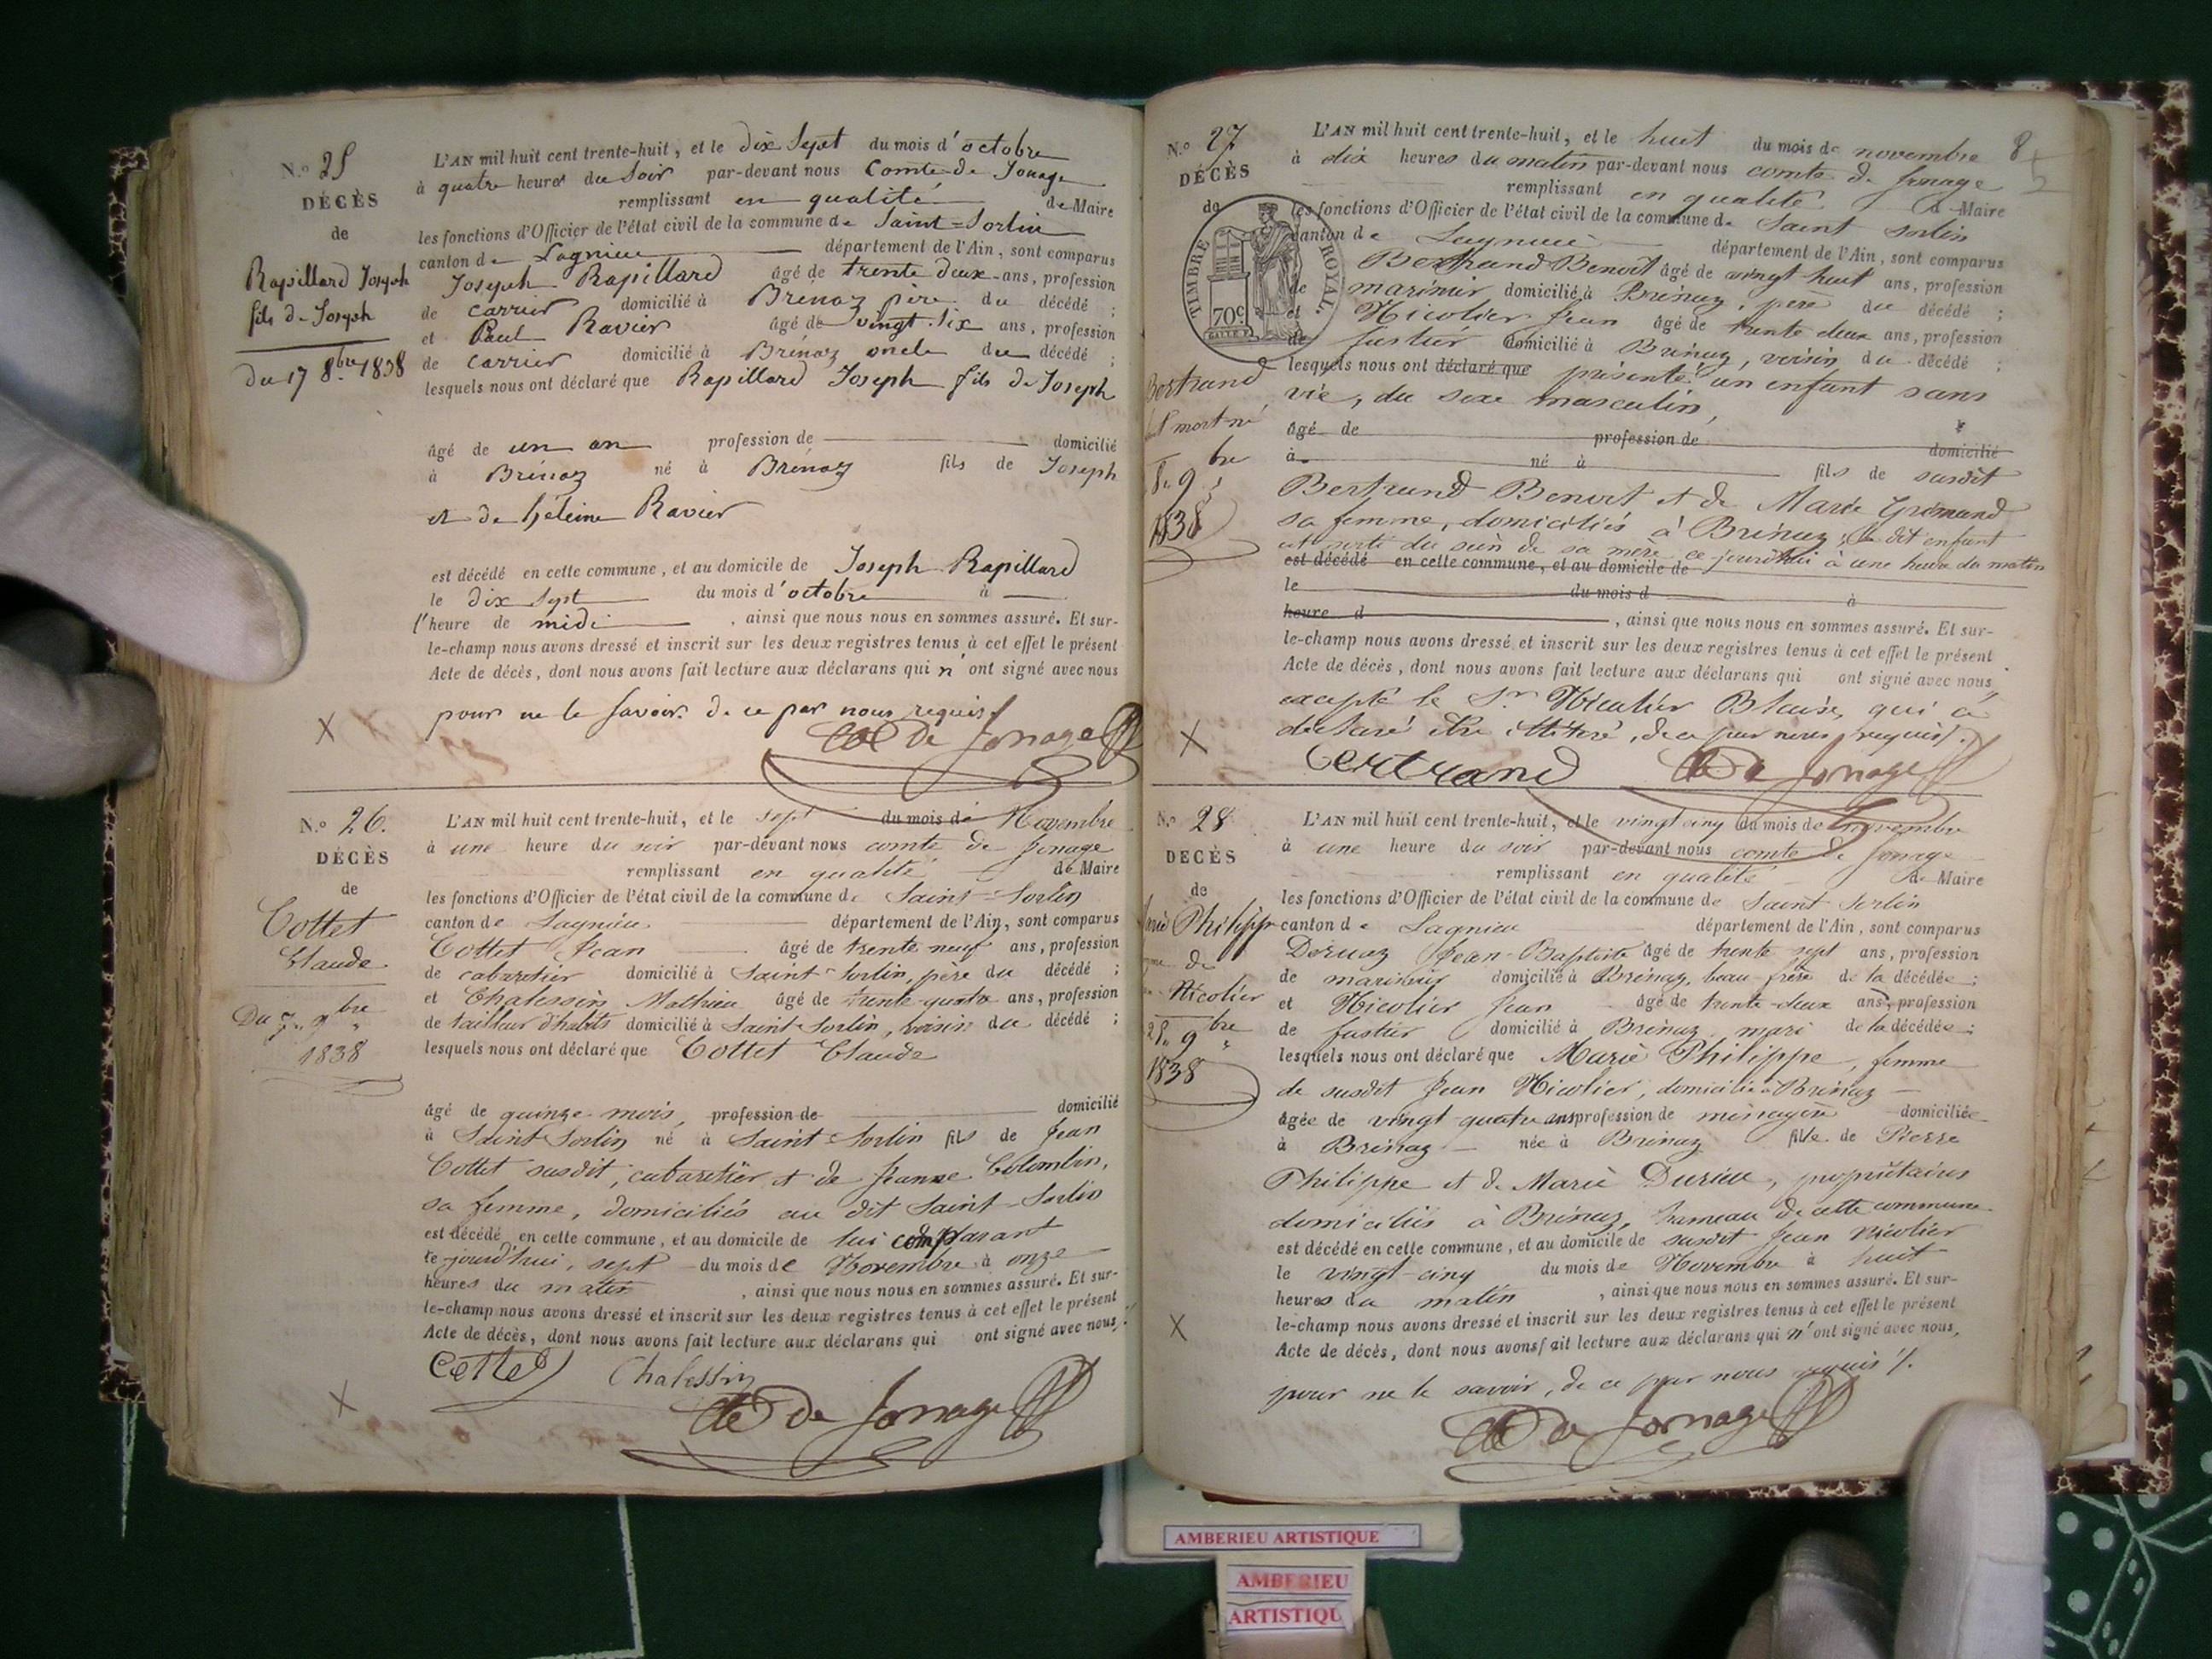 N.o 25
DÉCÈS
de
Rapillard Joseph
fils de Joseph
du 17 8bre 1838
L'AN mil huit cent trente-huit, et le dix sept du mois d'octobre
à quatre heures du soir par-devant nous Comte de Jonage
remplissant en qualité de Maire
les fonctions d'Officier de l'état civil de la commune de Saint-Sorlin
canton de Lagnieu département de l'Ain, sont comparus
Joseph Rapillard âgé de trente deux ans, profession
de carrier domicilié à Brénaz père du décédé ;
et Paul Ravier âgé de vingt six ans, profession
de carrier domicilié à Brénaz oncle du décédé ;
lesquels nous ont déclaré que Rapillard Joseph fils de Joseph
âgé de un an profession de domicilié
à Brénaz né à Brénaz fils de Joseph
et de héleine Ravier
est décédé en cette commune, et au domicile de Joseph Rapillard
le dix sept du mois d'octobre à
l'heure de midi , ainsi que nous nous en sommes assuré. Et sur-
le-champ nous avons dressé et inscrit sur les deux registres tenus à cet effet le présent
Acte de décès, dont nous avons fait lecture aux déclarans qui n'ont signé avec nous
pour ne le savoir. de ce par nous requis
X
Cte De Jonage
N.o 26.
DÉCÈS
de
Cottet
Claude
Du 7. 9bre
1838
L'AN mil huit cent trente-huit, et le sept du mois de Novembre
à une heure du soir par-devant nous comte de Jonage
remplissant en qualité de Maire
les fonctions d'Officier de l'état civil de la commune de Saint-Sorlin
canton de Lagnieu département de l'Ain, sont comparus
Cottet Jean âgé de trente neuf ans, profession
de cabaretier domicilié à Saint-Sorlin, père du décédé ;
et Chalessin Mathieu âgé de trente-quatre ans, profession
de tailleur d'habits domicilié à Saint-Sorlin, voisin du décédé ;
lesquels nous ont déclaré que Cottet Claude
âgé de quinze mois, profession de domicilié
à Saint-Sorlin né à Saint-Sorlin fils de Jean
Cottet susdit, cabaretier et de Jeanne Colombin,
sa femme, domiciliés au dit Saint-Sorlin
est décédé en cette commune, et au domicile de lui comparant
ce jourd'hui, sept du mois de Novembre à onze
heures du matin , ainsi que nous nous en sommes assuré. Et sur-
le-champ nous avons dressé et inscrit sur les deux registres tenus à cet effet le présent
Acte de décès, dont nous avons fait lecture aux déclarans qui ont signé avec nous
Cottet Chalessin
X
Cte De Jonage
8
N.o 27
DÉCÈS
de
TIMBRE ROYAL.
70c
Bertrand
mort-né
8. 9bre
1838
L'AN mil huit cent trente-huit, et le huit du mois de novembre
à dix heures du matin par-devant nous comte de Jonage
remplissant en qualité de Maire
les fonctions d'Officier de l'état civil de la commune de Saint Sorlin
canton de Lagnieu département de l'Ain, sont comparus
Bertrand Benoit âgé de vingt huit ans, profession
de marinier domicilié à Brénaz, père du décédé ;
et Nicolier Jean âgé de trente deux ans, profession
de fustier domicilié à Brénaz, voisin du décédé ;
lesquels nous ont déclaré que présenté un enfant sans
vie, du sexe masculin,
âgé de profession de domicilié
à né à fils de susdit
Bertrand Benoit et de Marie Grimand
sa femme, domiciliés à Brénaz ; le dit enfant
est sorti du sein de sa mère ce jourd'hui à une heure du matin
est décédé en cette commune, et au domicile de
le du mois d à
heure d , ainsi que nous nous en sommes assuré. Et sur-
le-champ nous avons dressé et inscrit sur les deux registres tenus à cet effet le présent
Acte de décès, dont nous avons fait lecture aux déclarans qui ont signé avec nous,
excepté le Sr. Nicolier Blaise, qui a
déclaré être illitéré, de ce par nous requis.
X
Bertrand Cte De Jonage
N.o 28
DÉCÈS
de
Marie Philippe
de
Nicolier
25. 9bre
1838
L'AN mil huit cent trente-huit, et le vingt cinq du mois de novembre
à une heure du soir par-devant nous comte de Jonage
remplissant en qualité de Maire
les fonctions d'Officier de l'état civil de la commune de Saint Sorlin
canton de Lagnieu département de l'Ain, sont comparus
Deruaz Jean-Baptiste âgé de trente sept ans, profession
de marinier domicilié à Brénaz, beau-frère de la décédée ;
et Nicolier Jean âgé de trente-deux ans, profession
de fustier domicilié à Brénaz mari de la décédée ;
lesquels nous ont déclaré que Marie Philippe, femme
de susdit Jean Nicolier, domiciliée à Brénaz
âgée de vingt-quatre ans profession de ménagère domiciliée
à Brénaz née à Brénaz fille de Pierre
Philippe et de Marie Durieu, propriétaires
domiciliés à Brénaz, hameau de cette commune
est décédé en cette commune, et au domicile de susdit Jean Nicolier
le vingt-cinq du mois de Novembre à huit
heures du matin , ainsi que nous nous en sommes assuré. Et sur-
le-champ nous avons dressé et inscrit sur les deux registres tenus à cet effet le présent
Acte de décès, dont nous avons fait lecture aux déclarans qui n'ont signé avec nous,
pour ne le savoir, de ce par nous requis
X
Cte De Jonage
AMBERIEU ARTISTIQUE
AMBERIEU
ARTISTIQU